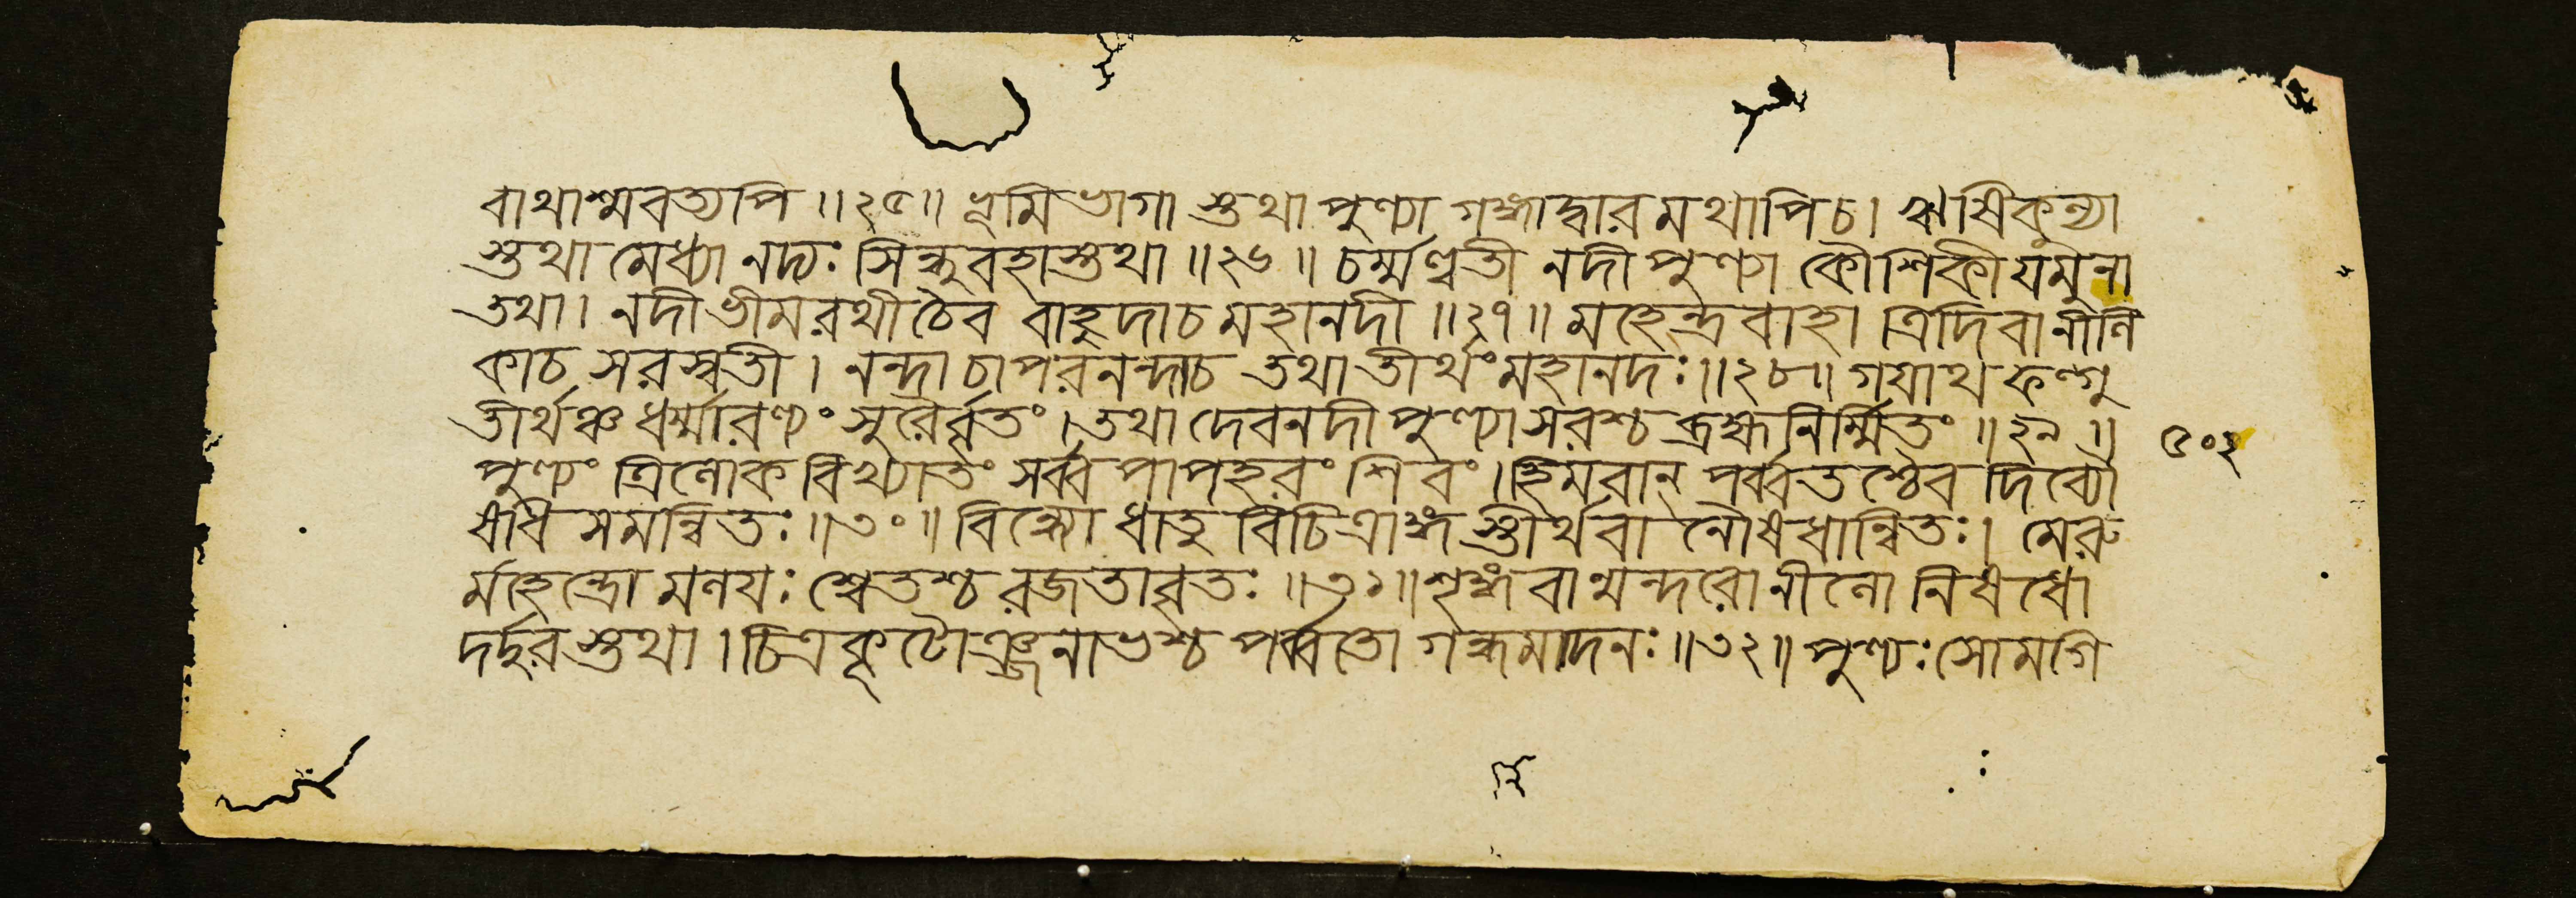 বাথাশ্মবত্যপি॥২৫॥ভূমিভাগাস্তথাপুণ্যাগঙ্গাদ্বারমথাপিচ।ঋষিকুল্যা
স্তথামেধ্যানদ্যঃসিন্ধুবহাস্তথা॥২৬॥চর্ম্মণ্বতীনদীপুণ্যাকৌশিকীযমুনা
তথা।নদীভীমরথীচৈববাহুদাচমহানদী॥২৭॥মহেন্দ্রবাহাত্রিদিবানীলি
কাচসরস্বতী।নন্দাচাপরনন্দাচতথাতীর্থংমহানদঃ॥২৮॥গযাথফল্গু
তীর্থঞ্চধর্ম্মারণ্যংসুরৈর্ব্বৃতং।তথাদেবনদীপুণ্যাসরশ্চব্রহ্মনির্ম্মিতং॥২৯॥ ৫০২
পুণ্যংত্রিলোকবিখ্যাতংসর্ব্বপাপহরংশিবং।হিমবান্পর্ব্বতশ্চৈবদিব্যৌ
ষধিসমন্বিতঃ॥৩০॥বিন্ধ্যোধাতুবিচিত্রাঙ্গস্তীর্থবানৌষধান্বিতঃ।মেরু
র্মহেন্দ্রোমলযঃশ্বেতশ্চরজতাবৃতঃ॥৩১॥শৃঙ্গবান্মন্দরোনীলোনিষধো
দর্দ্দুরস্তথা।চিত্রকূটোঞ্জনাভশ্চপর্ব্বতোগন্ধমাদনঃ॥৩২॥পুণ্যঃসোমগি